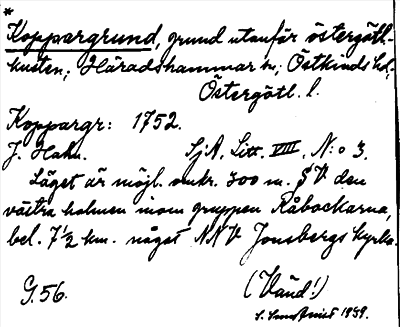 *
Koppargrund, grund utanför östergötl.-
kusten; Häradshammar sn, Östkinds hd,
Östergötl. l.
Koppargr: 1752.
J. Hahn. SjA, Litt. VIII, N:o 3.
Läget är möjl. omkr. 700 m. S V den
västra holmen inom gruppen Råbockarna,
bel. 7 1/2 km. något NNV Jonsbergs kyrka.
G. 56. (Vänd!)
1939.